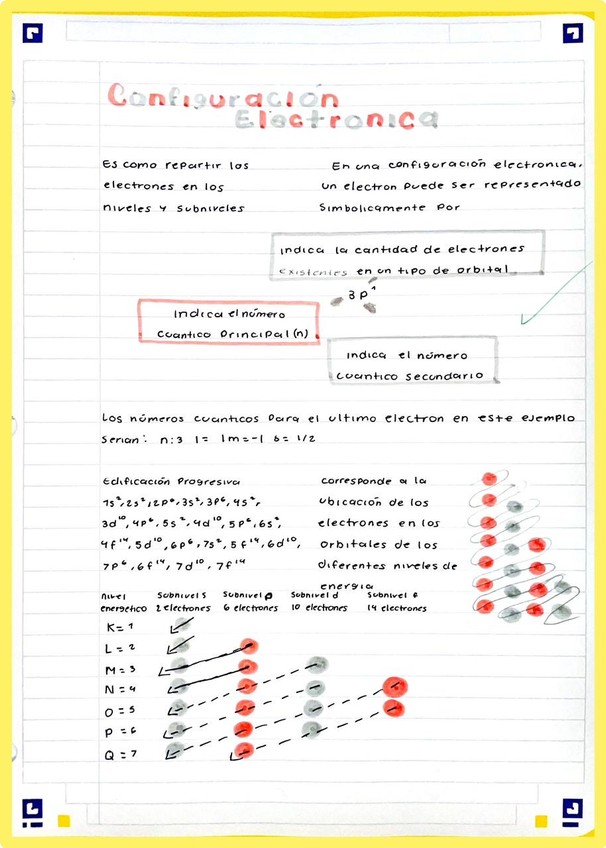 Configuración
Electronica
Es como repartir los
electrones en los
niveles y subniveles
En una configuración electronica,
un electron puede ser representado
simbolicamente por
Indica la cantidad de electrones
existentes en un tipo de orbital
3p¹
Indica el número
cuantico principal (n)
Indica el número
cuantico secundario
Los números cuanticos para el ultimo electron en este ejemplo
serian: n:3 l= 1m=-1 s= 1/2
Edificación Progresiva
1s², 2s², 2p⁶, 3s², 3p⁶, 4s²,
3d¹⁰, 4p⁶, 5s², 4d¹⁰, 5p⁶, 6s²,
4f¹⁴, 5d¹⁰, 6p⁶, 7s², 5f¹⁴, 6d¹⁰,
7p⁶, 6f¹⁴, 7d¹⁰, 7f¹⁴
corresponde a la
ubicación de los
electrones en los
orbitales de los
diferentes niveles de
energia
nivel energetico
Subnivel s 2 electrones
Subnivel p 6 electrones
Subnivel d 10 electrones
Subnivel f 14 electrones
K= 1
L = 2
M = 3
N = 4
O = 5
P = 6
Q = 7